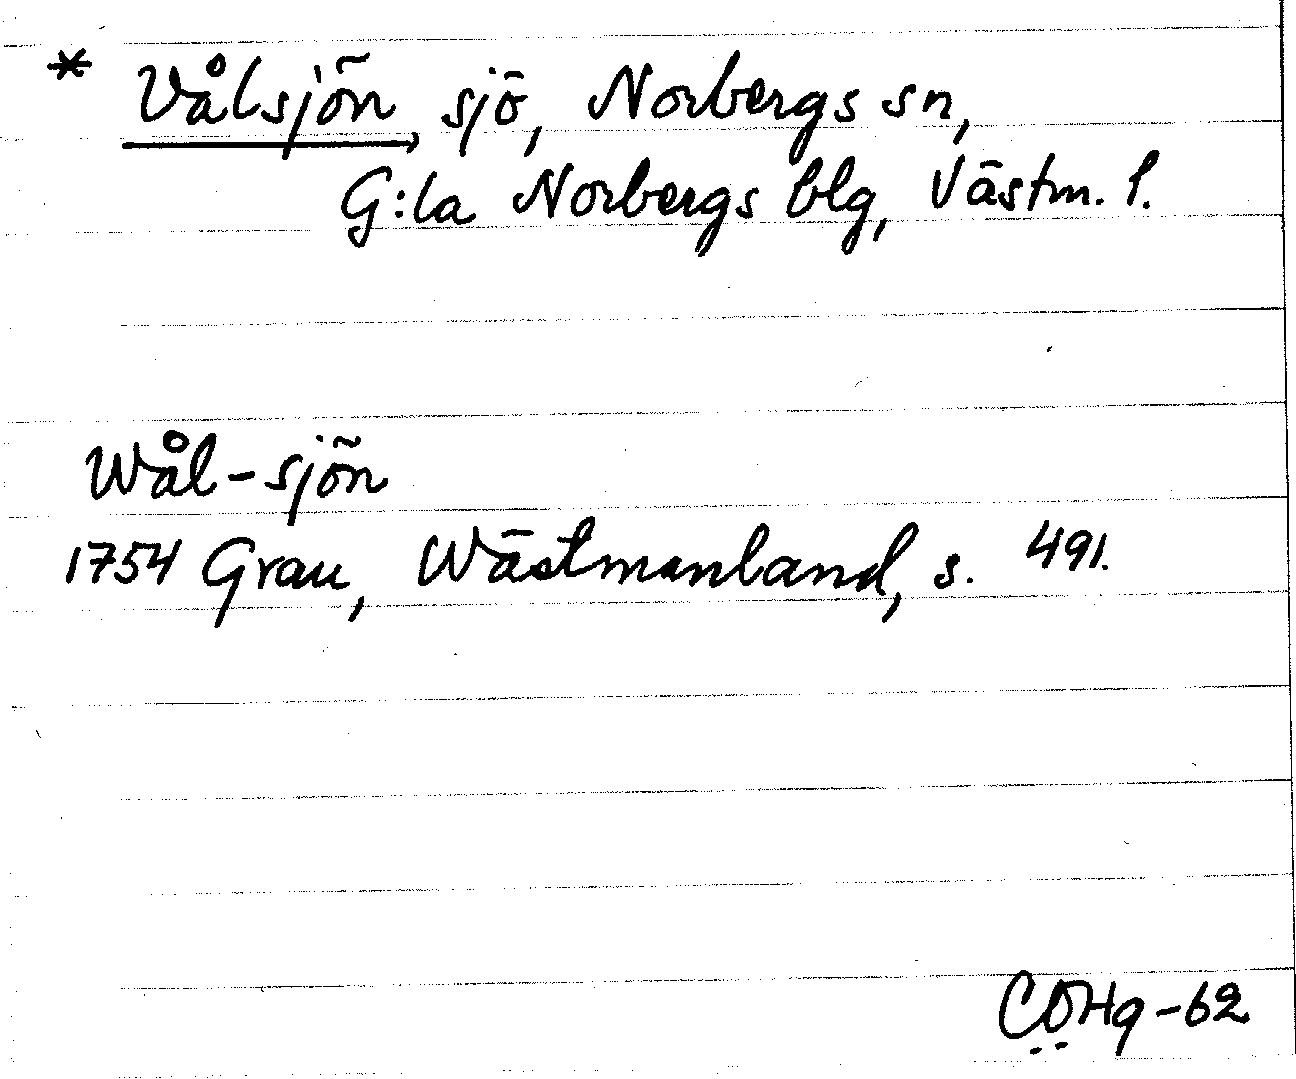 * Vålsjön, sjö, Norbergs sn,
G:la Norbergs blg, Västm. l.
Wål-sjön
1754 Grau, Wästmanland, s. 491.
CÖHg-62